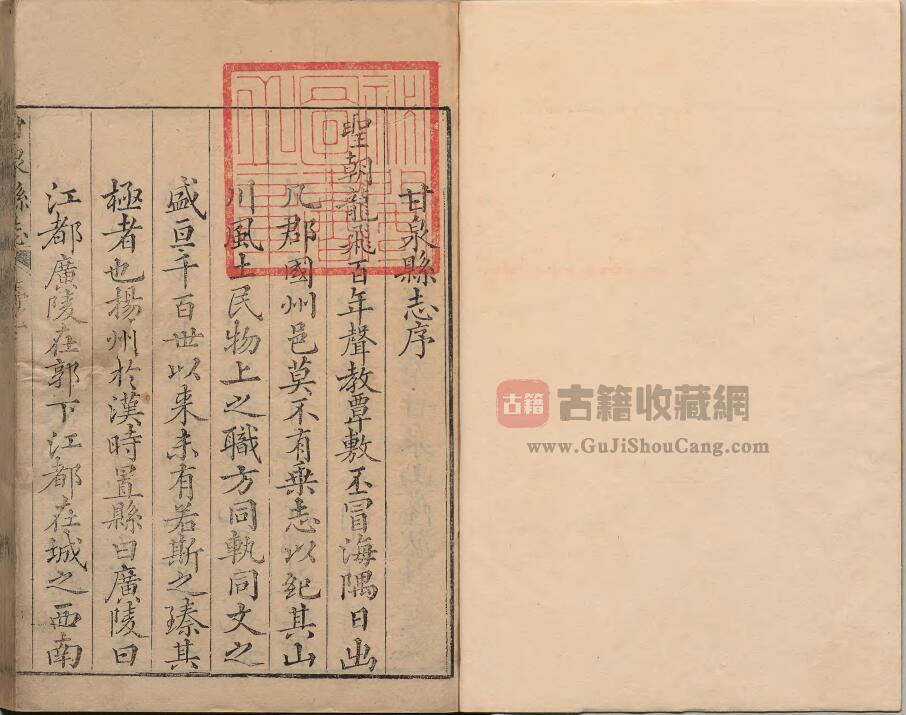 甘泉縣志序
聖朝龍飛百年聲教覃敷丕冒海隅日出
凡郡國州邑莫不有乗志以紀其山
川風土民物上之職方同執同文之
盛亘千百世以来未有若斯之臻其
極者也揚州於漢時置縣曰廣陵曰
江都廣陵在郭下江都在城之西南
甘泉縣志
古籍
古籍收藏網
www.GuJiShouCang.com